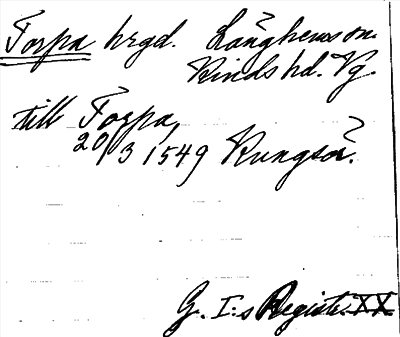 Torpa hrgd. Länghems sn.
Kinds hd. Vg.
till Torpa,
20/3 1549 Kungsör.
G. I:s Registr. XX